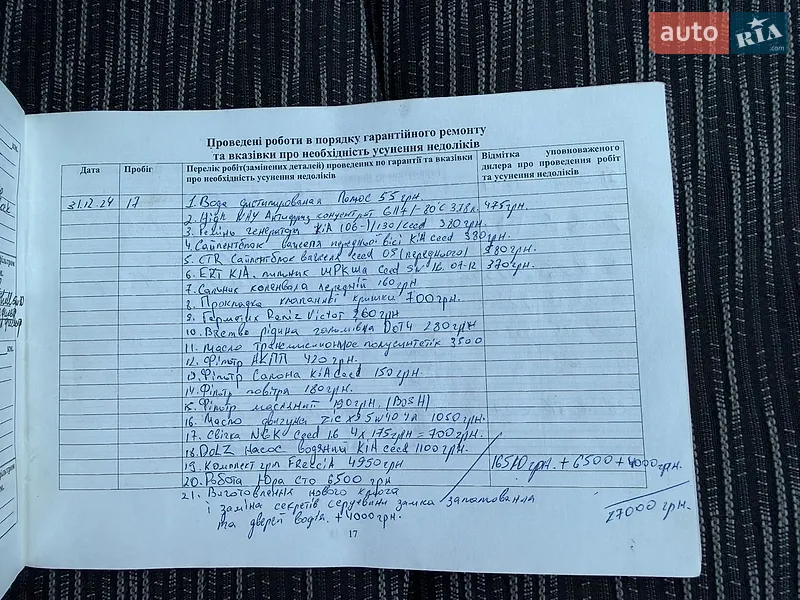 auto RIA .com
Проведені роботи в порядку гарантійного ремонту
та вказівки про необхідність усунення недоліків
Дата
Пробіг
Перелік робіт(замінених деталей) проведених по гарантії та вказівки про необхідність усунення недоліків
Відмітка уповноваженого дилера про проведення робіт та усунення недоліків
31.12.24 17 1. Вода дистилированая Полюс 55 грн.
2. High WAY Антифриз концентрат G11 /-80°C 3,78л. 475грн.
3. Ремінь генератора KIA (06-)/130/ceed 380грн.
4. Сайлентблок важеля передньої вісі KIA ceed 380грн.
5. CTR Сайлентблок важеля ceed 05 (переднього) 380грн.
6. ERT KIA. пильник ШРКша Ceed SW 1.6. 07-12 370грн.
7. Сальник коленвала передній 160грн
8. Прокладка клапанної кришки 700грн.
9. Герметик Reinz Victor 260грн
10. рідина гальмівна DOT4 280грн
11. Масло трансмиссионное полусинтетік 3500
12. Фільтр АКПП 420 грн.
13. Фільтр Салона KIA ceed 150грн.
14. Фільтр повітря 180грн.
15. Фільтр масляний 190грн. (BOSH)
16. Масло двигуна ZIC X9 5w40 4л 1050грн.
17. Свічка NGK Ceed 1.6 4x175грн = 700грн.
18. DOLZ Насос водяний KIA ceed 1100грн.
19. Комплект грм FRecciA 4950грн 16510грн. + 6500 + 4000грн.
20. Робота Юра сто 6500 грн
21. Виготовлення нового ключа
і заміна секретів серцевини замка запалювання
та дверей водія. + 4000грн.
27000 грн.
17